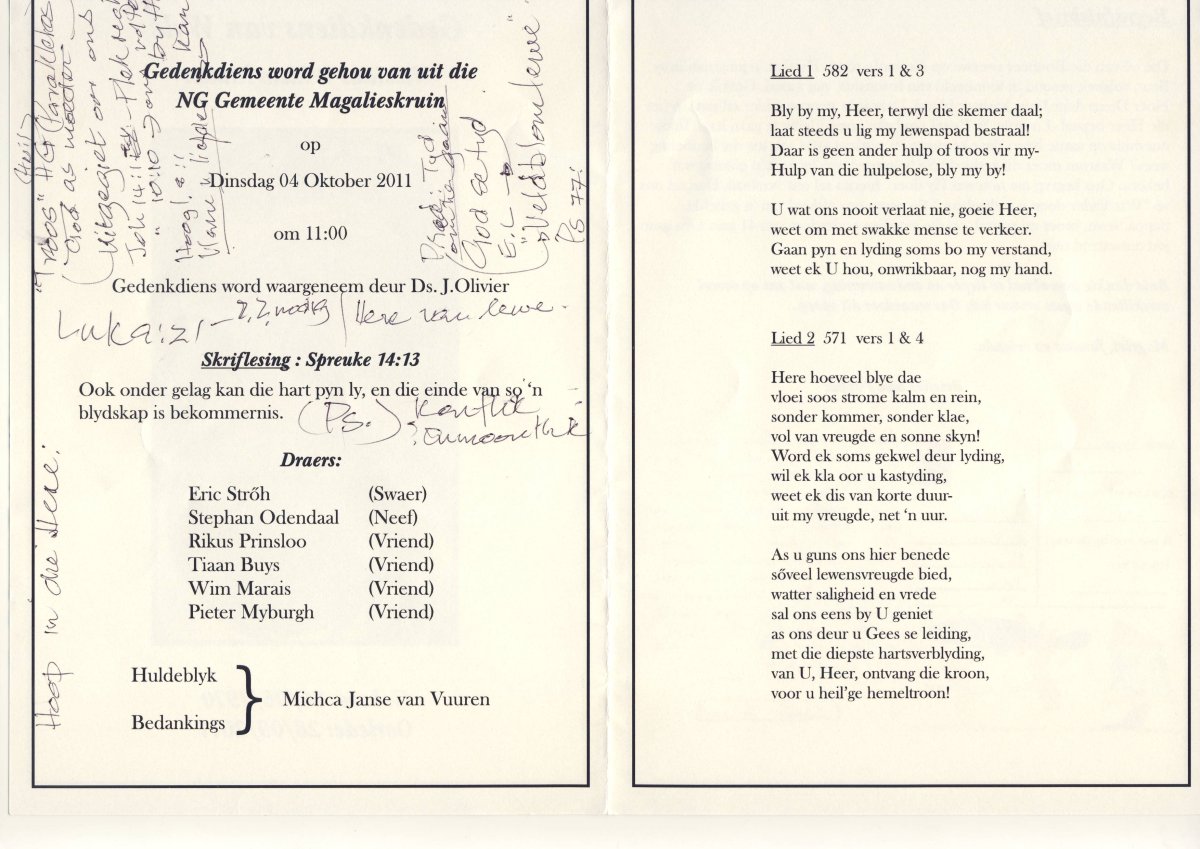 Gedenkdiens word gehou van uit die
NG Gemeente Magalieskruin
op
Dinsdag 04 Oktober 2011
om 11:00
Gedenkdiens word waargeneem deur Ds. J.Olivier
Here van lewe.
Skriflesing : Spreuke 14:13
Ook onder gelag kan die hart pyn ly, en die einde van so ‘n
blydskap is bekommernis.
(Ps.) Konflik
Draers:
Eric Strőh (Swaer)
Stephan Odendaal (Neef)
Rikus Prinsloo (Vriend)
Tiaan Buys (Vriend)
Wim Marais (Vriend)
Pieter Myburgh (Vriend)
Huldeblyk
Bedankings
} Michca Janse van Vuuren
Hoop in die Here.
"Troos" HG
God as moeder
Joh 14:11
" 10:10
Hoog!
God se tyd
E.L
"Veldblomlewe"
Ps 77.
Lied 1 582 vers 1 & 3
Bly by my, Heer, terwyl die skemer daal;
laat steeds u lig my lewenspad bestraal!
Daar is geen ander hulp of troos vir my-
Hulp van die hulpelose, bly my by!
U wat ons nooit verlaat nie, goeie Heer,
weet om met swakke mense te verkeer.
Gaan pyn en lyding soms bo my verstand,
weet ek U hou, onwrikbaar, nog my hand.
Lied 2 571 vers 1 & 4
Here hoeveel blye dae
vloei soos strome kalm en rein,
sonder kommer, sonder klae,
vol van vreugde en sonne skyn!
Word ek soms gekwel deur lyding,
wil ek kla oor u kastyding,
weet ek dis van korte duur-
uit my vreugde, net ‘n uur.
As u guns ons hier benede
sőveel lewensvreugde bied,
watter saligheid en vrede
sal ons eens by U geniet
as ons deur u Gees se leiding,
met die diepste hartsverblyding,
van U, Heer, ontvang die kroon,
voor u heil’ge hemeltroon!